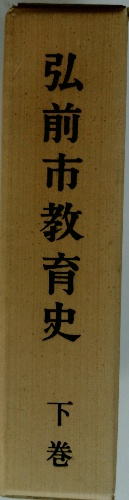 弘前市教育史
下巻